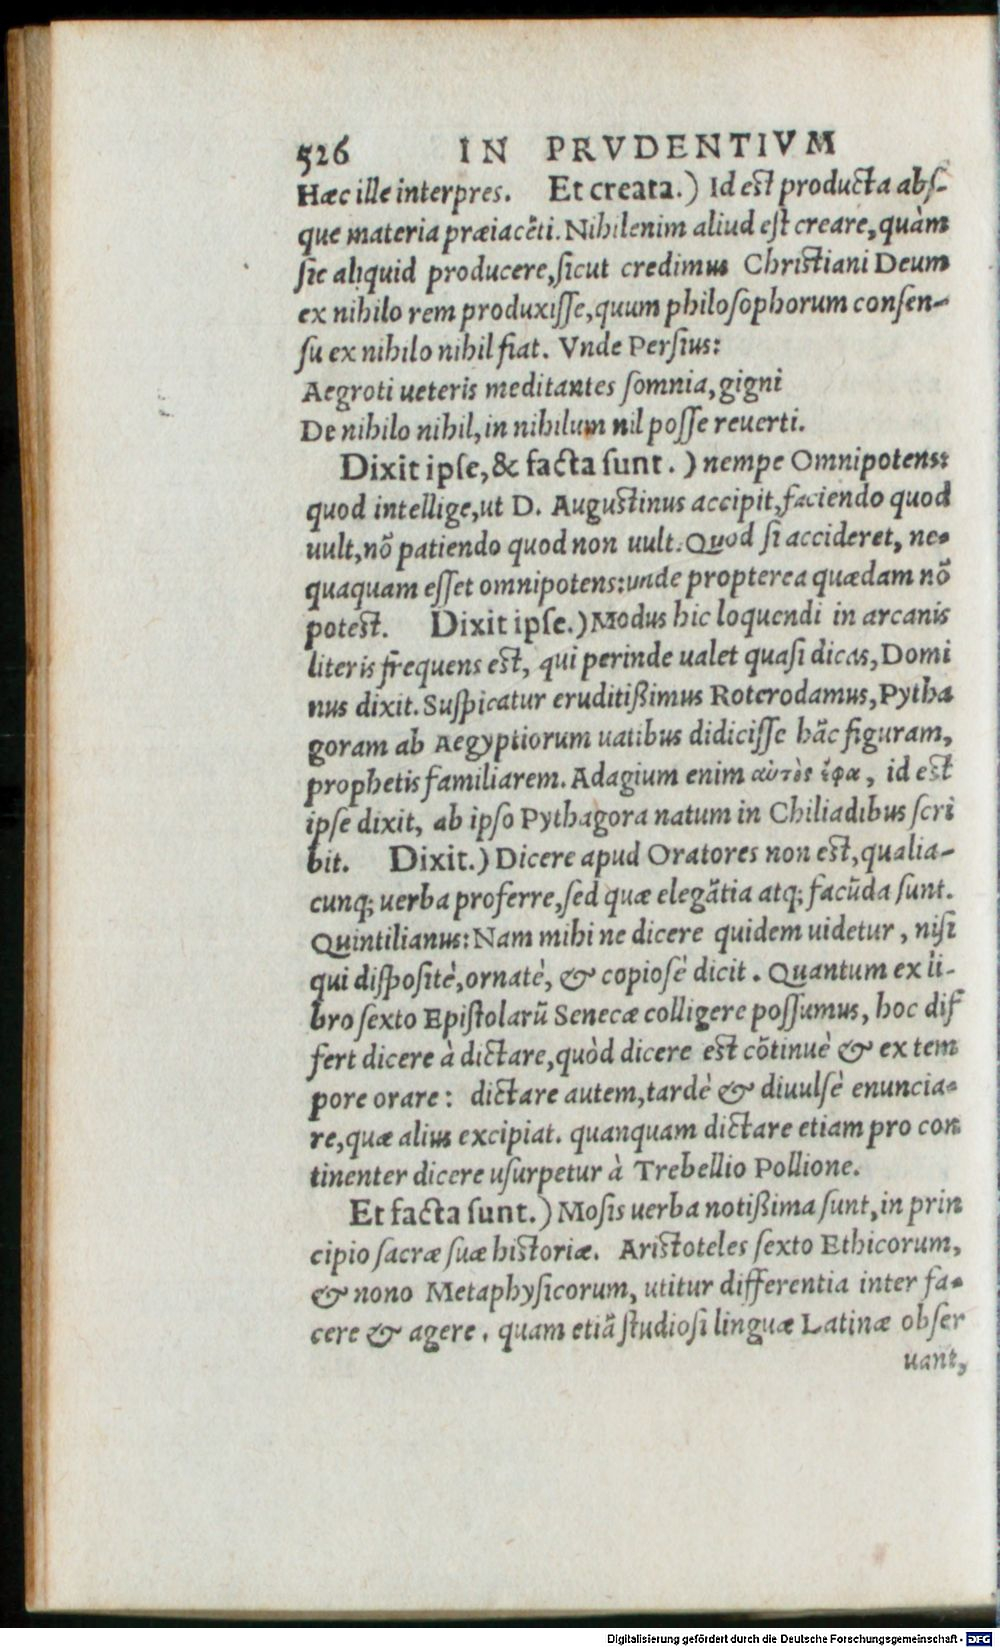 526 IN PRVDENTIVM
Hæc ille interpres. Et creata.) Id est producta abſ-
que materia præiacẽti. Nihil enim aliud eſt creare, quàm
ſic aliquid producere, ſicut credimus Christiani Deum
ex nihilo rem produxiſſe, quum philoſophorum conſen-
ſu ex nihilo nihil fiat. Vnde Perſius:
Aegroti ueteris meditantes ſomnia, gigni
De nihilo nihil, in nihilum nil poſſe reuerti.
Dixit ipſe, & facta ſunt.) nempe Omnipotens:
quod intellige, ut D. Augustinus accipit, faciendo quod
uult, nõ patiendo quod non uult. Quod ſi accideret, ne-
quaquam eſſet omnipotens: unde propterea quædam nõ
potest. Dixit ipſe.) Modus hic loquendi in arcanis
literis frequens est, qui perinde ualet quaſi dicas, Domi
nus dixit. Suſpicatur eruditißimus Roterodamus, Pytha
goram ab Aegyptiorum uatibus didiciſſe hãc figuram,
prophetis familiarem. Adagium enim αὐτὸς ἔφα, id est
ipſe dixit, ab ipſo Pythagora natum in Chiliadibus ſcri
bit. Dixit.) Dicere apud Oratores non est, qualia-
cunq; uerba proferre, ſed quæ elegãtia atq; facũda ſunt.
Quintilianus: Nam mihi ne dicere quidem uidetur, niſi
qui diſpoſitè, ornatè, & copioſè dicit. Quantum ex li-
bro ſexto Epiſtolarũ Senecæ colligere poſſumus, hoc dif
fert dicere à dictare, quòd dicere est cõtinuè & ex tem
pore orare: dictare autem, tardè & diuulſè enuncia-
re, quæ alius excipiat. quanquam dictare etiam pro con
tinenter dicere uſurpetur à Trebellio Pollione.
Et facta ſunt.) Moſis uerba notißima ſunt, in prin
cipio ſacræ ſuæ historiæ. Aristoteles ſexto Ethicorum,
& nono Metaphyſicorum, utitur differentia inter fa-
cere & agere, quam etiã ſtudioſi linguæ Latinæ obſer
uant,
Digitalisierung gefördert durch die Deutsche Forschungsgemeinschaft - DFG